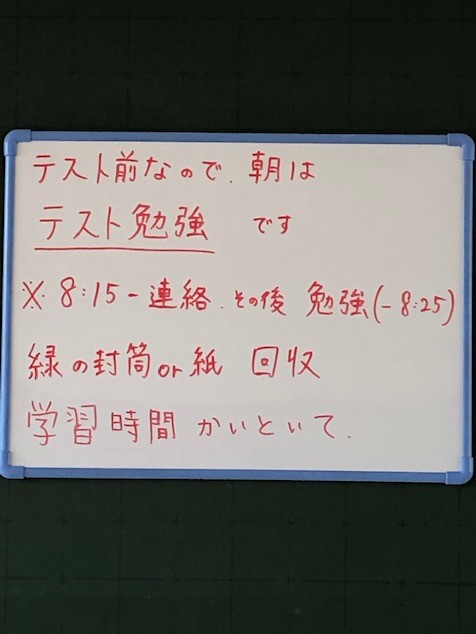 テスト前なので、朝は
テスト勉強 です
※ 8:15 - 連絡、その後 勉強(-8:25)
緑の封筒or紙 回収
学習時間 かいといて.